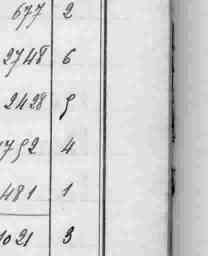 677 2
2748 6
2428 5
1752 4
481 1
1021 3